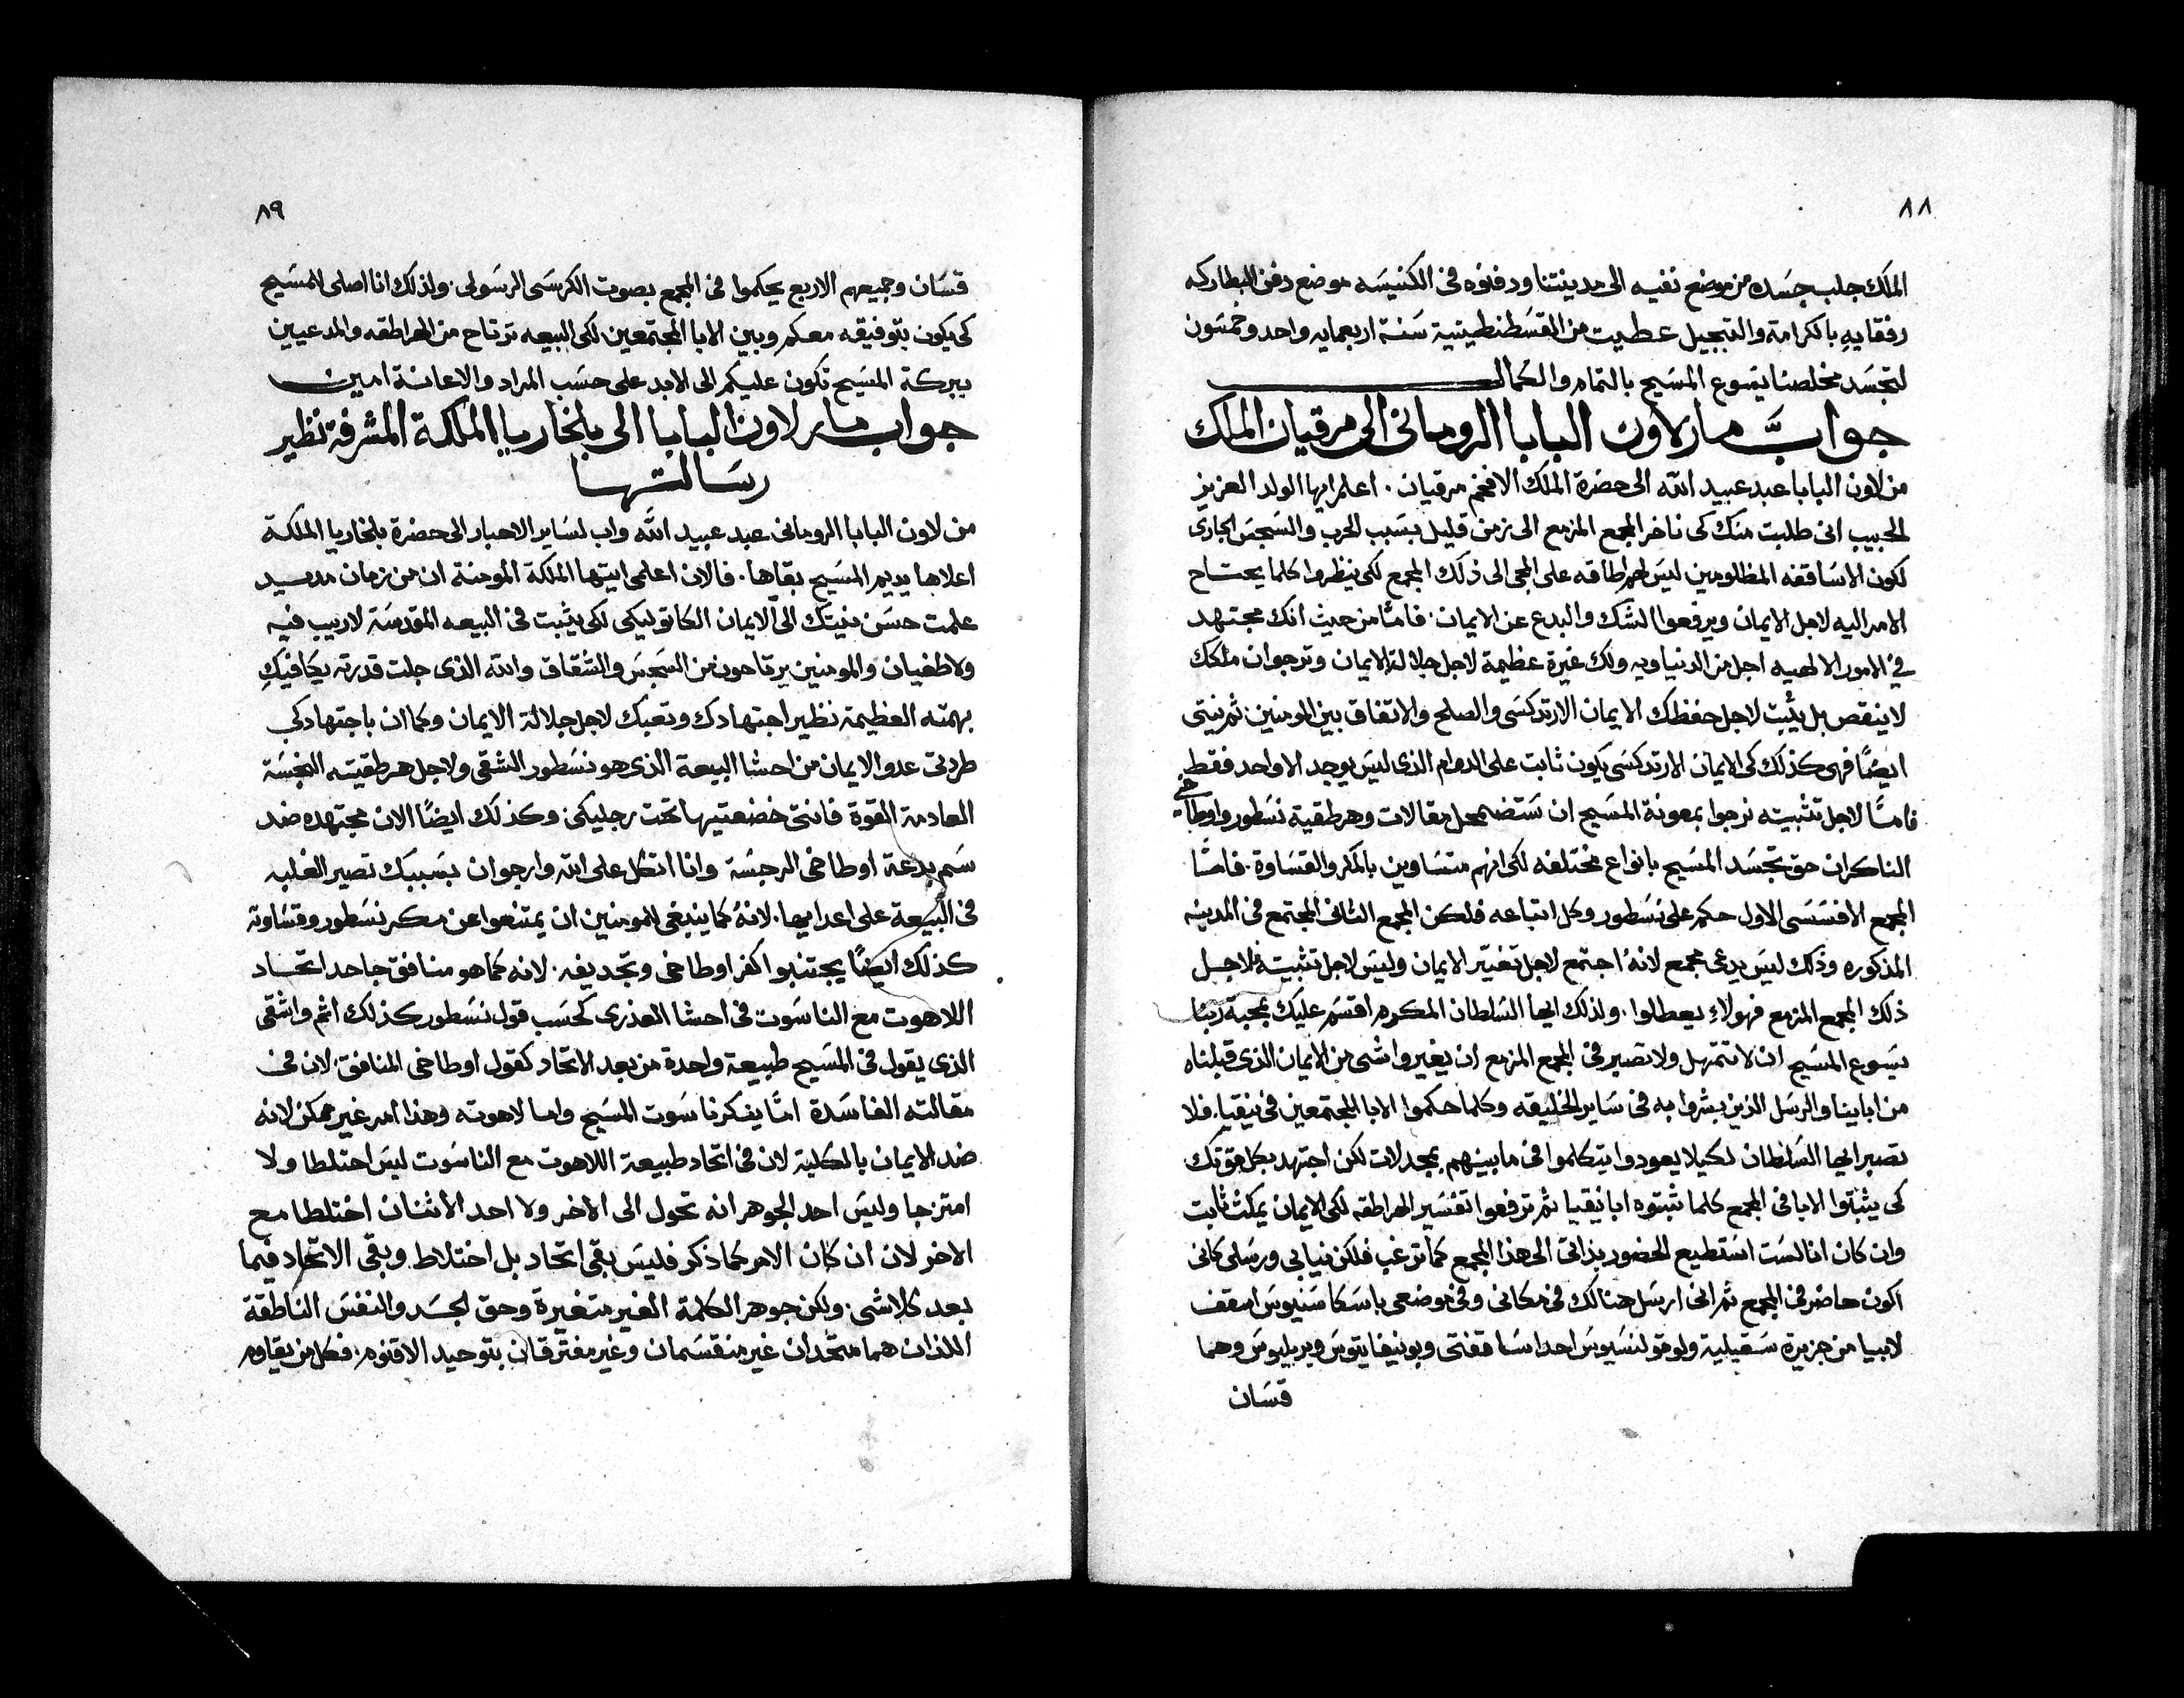 ٨٨
الملك جلب جسده من موضع نفيه الى مدينتنا ودفنوه فى الكنيسه موضع دفن البطاركه
رفقايهِ بالكرامة والتبجيل عطيت من القسطنطينية سنة اربعمايه واحد وخمسون
لتجسد مخلصنا يسوع المسيح بالتمام والكمال
جواب مار لاون البابا الرومانى الى مرقيان الملك
من لاون البابا عبد عبيد الله الى حضرة الملك الافخم مرقيان . اعلم ايها الولد العزيز
الحبيب انى طلبت منك كى ناخر المجمع المزمع الى زمن قليل بسبب الحرب والسجس الجارى
لكون الاساقفه المظلومين ليس لهم طاقه على المجى الى ذلك المجمع لكى ينظروا كلما يحتاج
الامر اليه لاجل الايمان ويرفعوا الشك والبدع عن الايمان . فامّا من حيث انك مجتهد
في الامور الالهيه اجل من الدنياويه ولك غيرة عظيمة لاجل جلالة الايمان وترجوا ان ملكك
لا ينقص بل يثبت لاجل حفظك الايمان الارتدكسى والصلح والاتفاق بين المومنين ثم نيتى
ايضًا فهى كذلك كى الايمان الارتدكسى يكون ثابت على الدوام الذى ليس يوجد الا واحد فقط
فامّا لاجل تثبيته نرجوا بمعونة المسيح ان ستضمحل مقالات وهرطقية نسطور واوطاخى
الناكران حق تجسد المسيح بانواع مختلفه لكى انهم متساوين بالمكر والقساوة . فامّا
المجمع الافسسى الاول حكم على نسطور وكل اتباعه فلكن المجمع الثانى المجتمع فى المدينه
المذكوره وذلك ليس يدعى مجمع لانهُ اجتمع لاجل تغيّر الايمان وليس لاجل تثبيته فلاجل
ذلك المجمع المزمع فهولاءِ يعطلوا . ولذلك ايها السلطان المكرم اقسم عليك بمحبة ربنا
يسوع المسيح ان لا تتمهل ولا تصبر فى المجمع المزمع ان يغيروا شى من الايمان الذى قبلناه
من اباينا والرسل الذين بشروا به فى ساير الخليقه وكلما حكموا الابا المجتمعين فى نيقيا . فلا
تصبر ايها السلطان لكيلا يعودوا يتكلموا فى ما بينهم بمجدلات لكن اجتهد بكل قوتك
كى يثبتوا الابا فى المجمع كلما ثبتوه ابا نيقيا ثم ترفعوا تفسير الهراطقه لكى الايمان يمكث ثابت
وان كان انا لست استطيع الحضور بذاتى الى هذا المجمع كما ترغب فلكن نيابى ورسلى كانى
اكون حاضر فى المجمع ثم انى ارسل هنالك فى مكانى وفى موضعى باسكاسنيوس اسقف
لابيا من جزيرة سقيلية ولوقولنسيوس احد اساقفتى وبونيفاتيوس وبريليوس وهما
قسان
٨٩
قسان وجميعهم الاربع يحكموا فى المجمع بصوت الكرسى الرسولى . ولذلك انا اصلى للمسيح
كى يكون بتوفيقه معكم وبين الابا المجتمعين لكى البيعه ترتاح من الهراطقه والمدعيين
ببركة المسيح تكون عليكم الى الابد على حسب المراد والاعانة امين
جواب مار لاون البابا الى بلخاريا الملكة المشرفة نظير
رسالتها
من لاون البابا الرومانى عبد عبيد الله واب لساير الاحبار الى حضرة بلخاريا الملكة
اعلاها يديم المسيح بقاها . فالان اعلمى ايتها الملكة المومنة ان من زمان مديد
علمت حسن نيتك الى الايمان الكاتوليكى لكى يثبت فى البيعه المقدسة لا ريب فيه
ولا طغيان والمومنين يرتاحون من السجس والشقاق والله الذى جلت قدرته يكافيكِ
بهمته العظيمة نظير اجتهادك وتعبك لاجل جلالة الايمان وكما ان باجتهادكى
طردتى عدو الايمان من احشا البيعة الذى هو نسطور الشقى ولاجل هرطقيته النجسة
العادمة القوة فانتى خضعتيها تحت رجليكى . وكذلك ايضًا الان مجتهده ضد
سم بدعة اوطاخى الرجسة وانا اتكل على الله وارجوا ان بسببك تصير الغلبه
فى البيعة على اعدايها . لانهُ كما ينبغى للمومنين ان يمتنعوا عن مكر نسطور وقساوته
كذلك ايضًا يجتنبوا كفر اوطاخى وتجديفه . لانه كما هو منافق جاحد اتحاد
اللاهوت مع الناسوت فى احشا العذرى كحسب قول نسطور كذلك اثم واشقى
الذى يقول فى المسيح طبيعة واحدة من بعد الاتحاد كقول اوطاخى المنافق . لان فى
مقالته الفاسدة امّا ينكر ناسوت المسيح واما لاهوته وهذا امر غير ممكن لانه
ضد الايمان بالكلية لان فى اتحاد طبيعة اللاهوت مع الناسوت ليس اختلطا ولا
امتزجا وليس احد الجوهر انه تحول الى الاخر ولا احد الاثنان اختلطا مع
الاخر لان ان كان الامر كما ذكر فليس بقى اتحاد بل اختلاط . وبقى الاتحاد فيما
بعد كلاشى . ولكن جوهر الكلمة الغير متغيرة وحق الجسد والنفس الناطقة
اللذان هما متحدان غير منقسمان وغير مفترقان بتوحيد الاقنوم . فكل من يقاوم